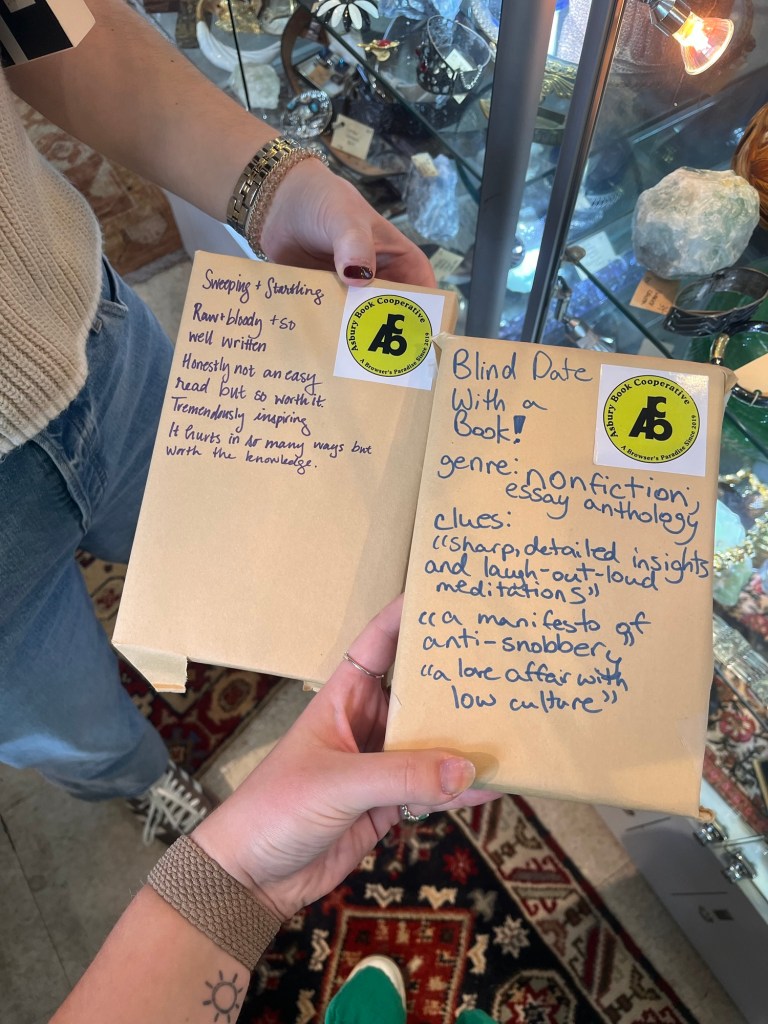 Sweeping + Startling
Raw + bloody + so
well written
Honestly not an easy
read but so worth it.
Tremendously inspiring
It hurts in so many ways but
worth the knowledge.
Asbury Book Cooperative
ACB
A Browser's Paradise Since 2019
Blind Date
With a
Book!
genre: nonfiction,
essay anthology
clues:
"sharp, detailed insights
and laugh-out-loud
meditations"
"a manifesto of
anti-snobbery"
"a love affair with
low culture"
Asbury Book Cooperative
ACB
A Browser's Paradise Since 2019